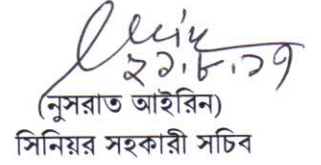 ২১.৮.১৭
(নুসরাত আইরিন)
সিনিয়র সহকারী সচিব